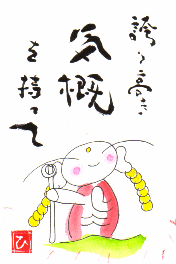 誇り高き
気概
を持って
ひ